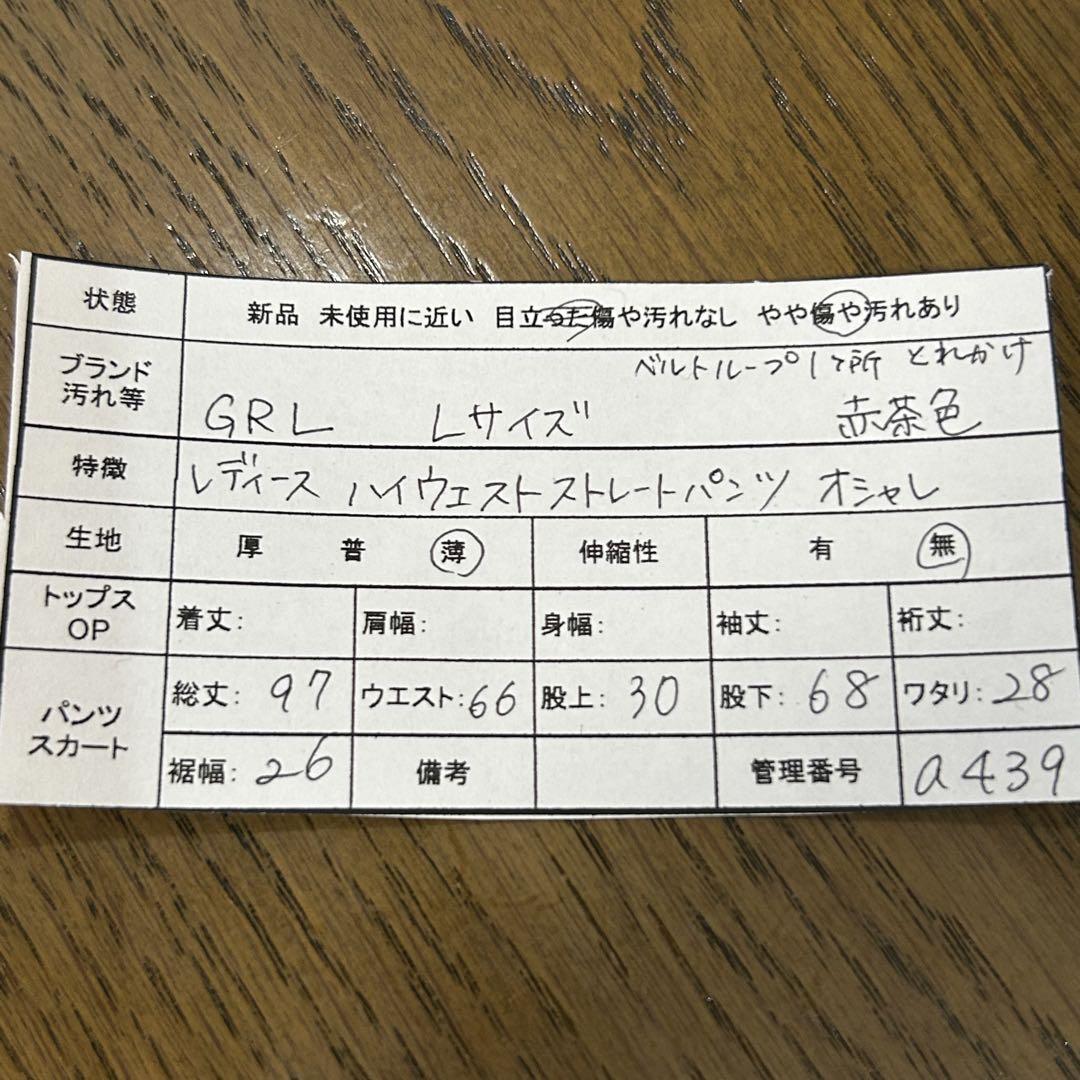 状態 新品 未使用に近い 目立った傷や汚れなし やや傷や汚れあり
ブランド 汚れ等 ベルトループ1ヶ所 とれかけ
GRL Lサイズ 赤茶色
特徴 レディース ハイウエストストレートパンツ オシャレ
生地 厚 普 薄 伸縮性 有 無
トップス OP 着丈: 肩幅: 身幅: 袖丈: 裄丈:
パンツ スカート 総丈: 97 ウエスト: 66 股上: 30 股下: 68 ワタリ: 28
裾幅: 26 備考 管理番号 a439